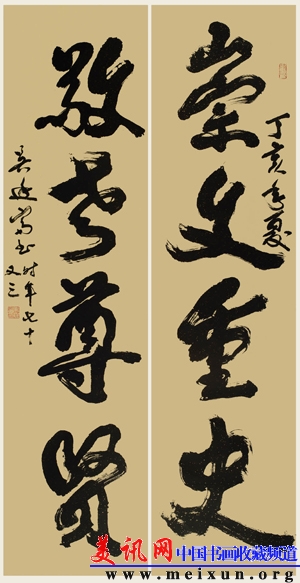 崇文重史
丁亥年夏
敬老尊贤
书时年七十
又三
美讯网 中国书画收藏频道
www.meixun.org